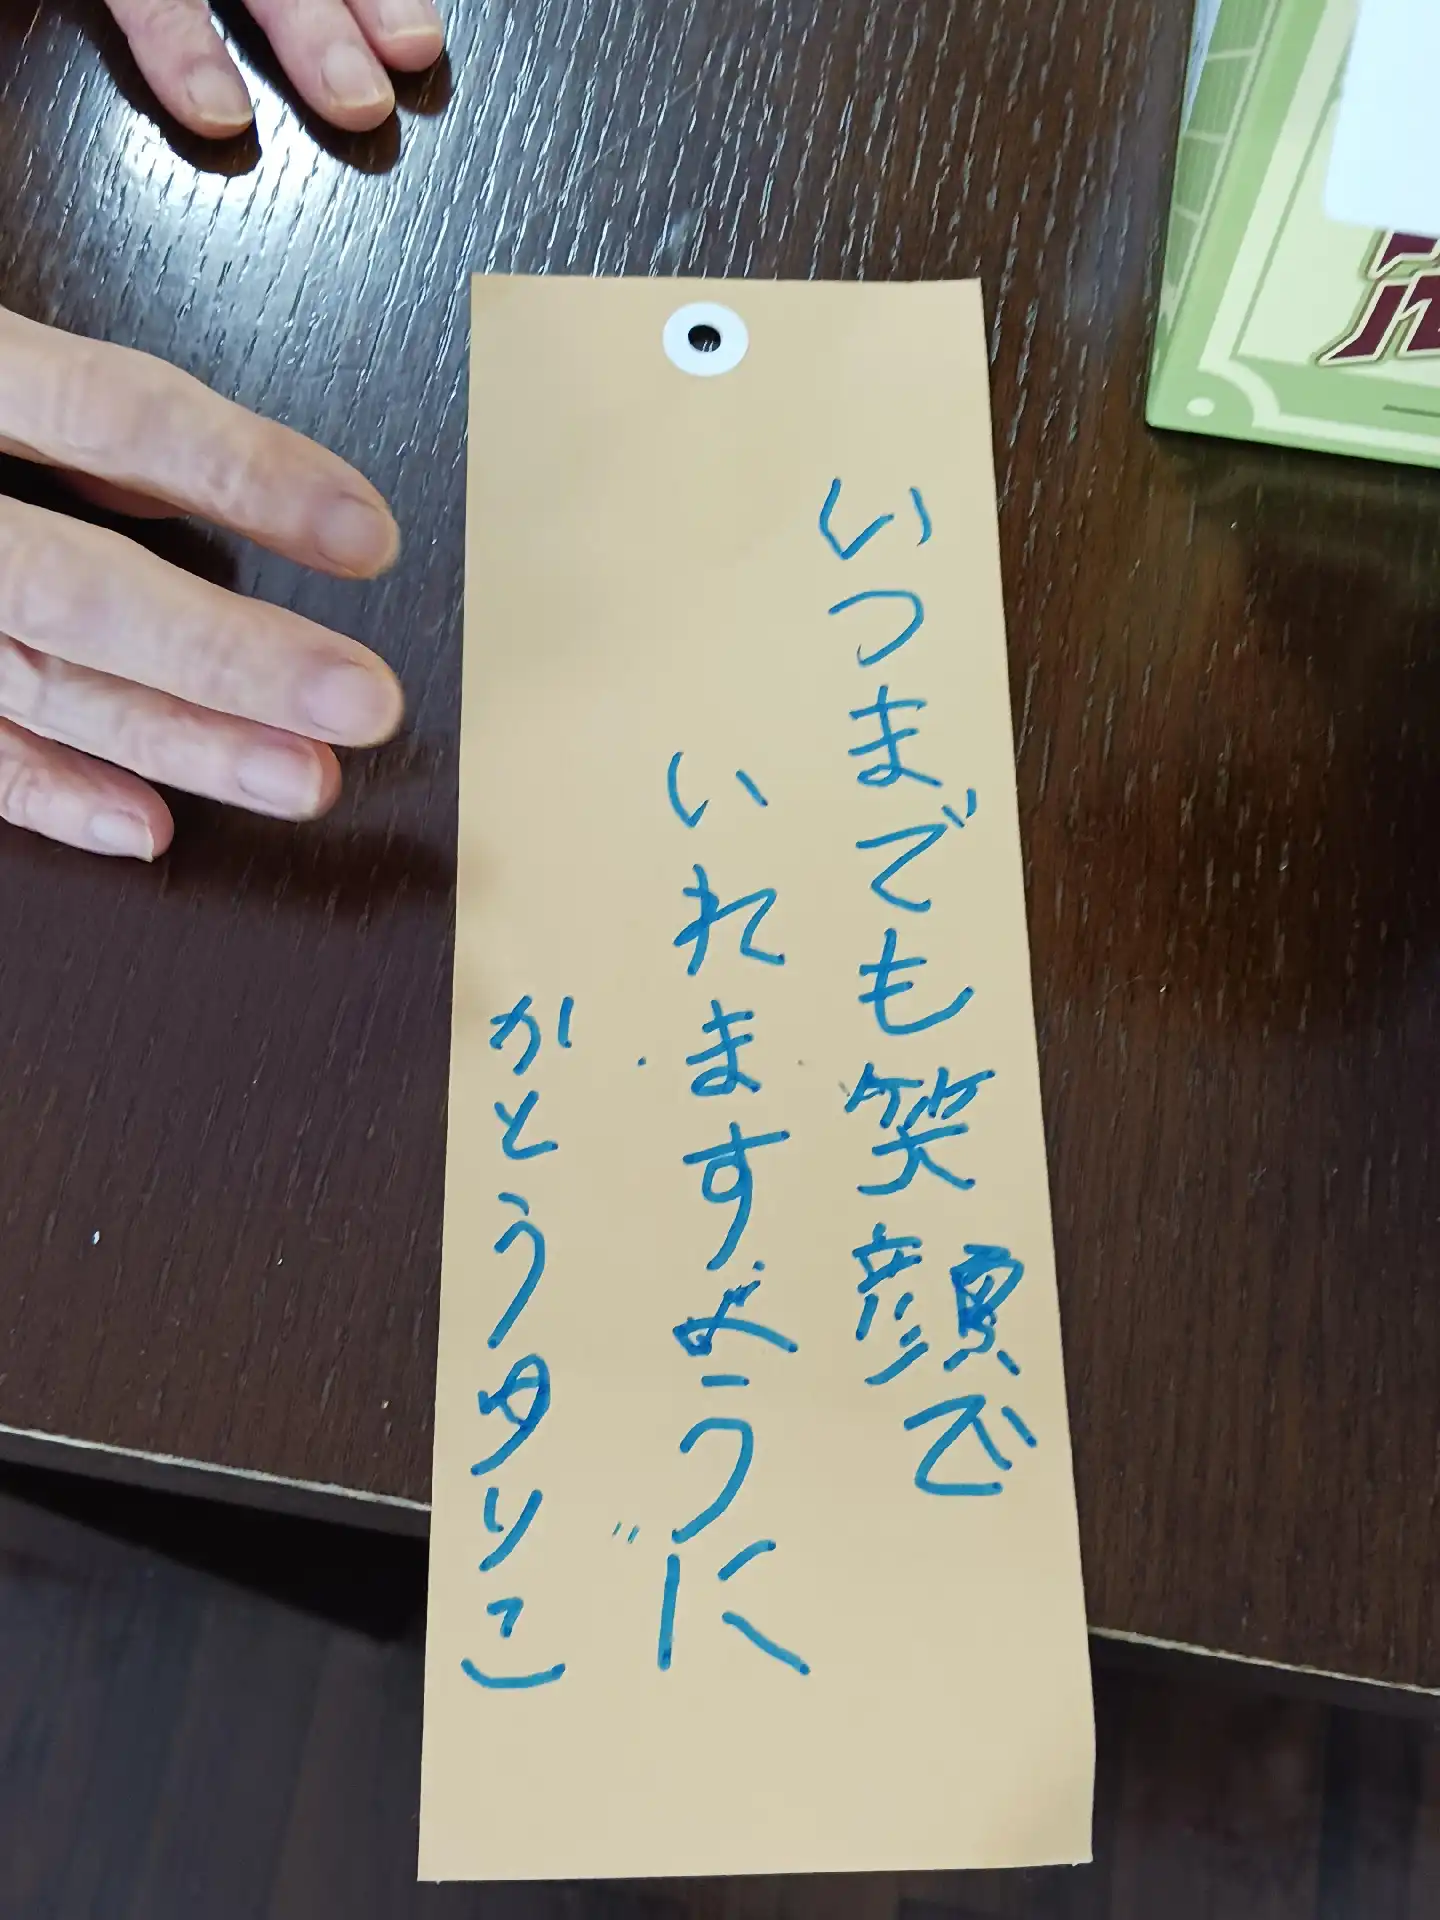 いつまでも笑顔で
いれますように
かとうゆりこ